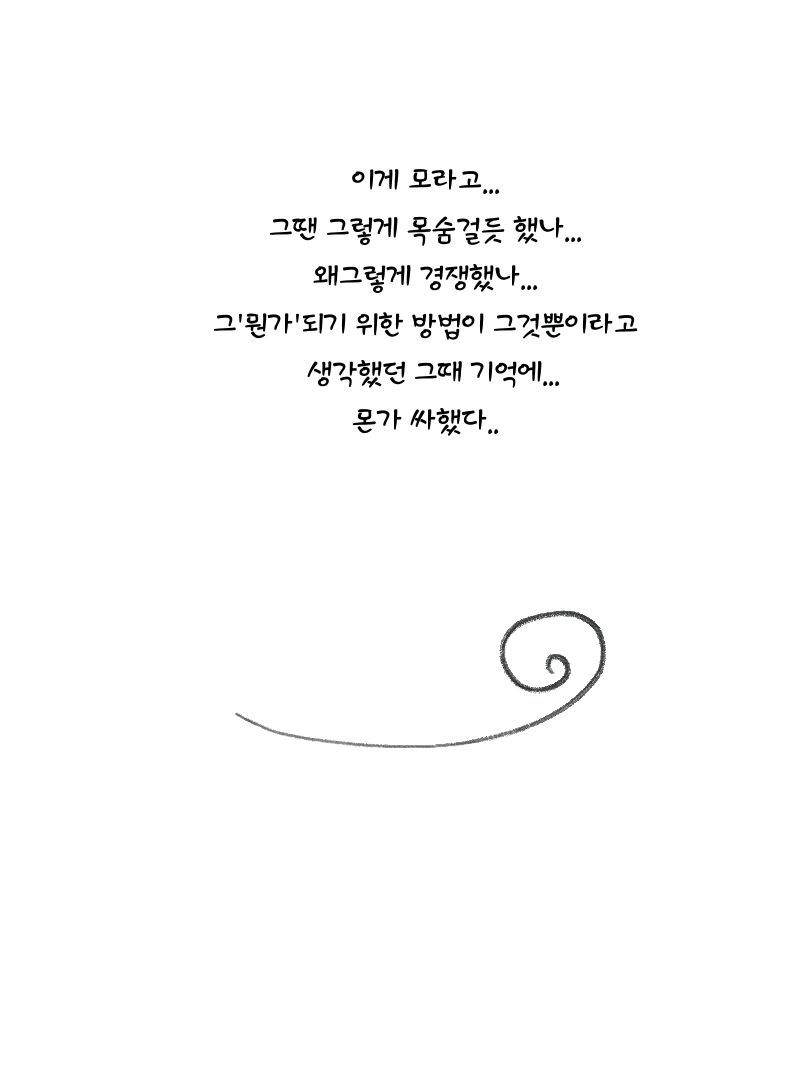 이게 모라고...
그땐 그렇게 목숨걸듯 했나...
왜그렇게 경쟁했나...
그'뭔가'되기 위한 방법이 그것뿐이라고
생각했던 그때 기억에...
몬가 싸했다..